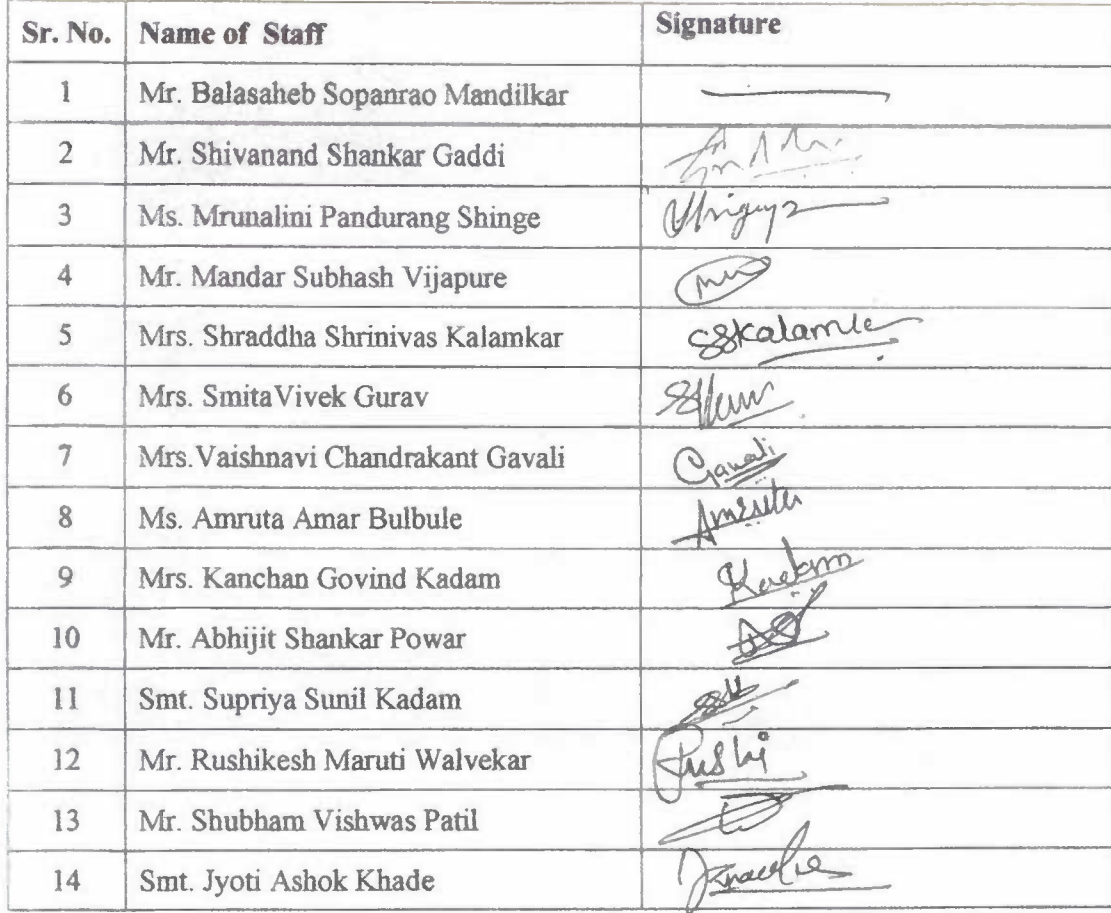 Sr. No. Name of Staff Signature
1 Mr. Balasaheb Sopanrao Mandilkar
2 Mr. Shivanand Shankar Gaddi
3 Ms. Mrunalini Pandurang Shinge
4 Mr. Mandar Subhash Vijapure
5 Mrs. Shraddha Shrinivas Kalamkar
6 Mrs. SmitaVivek Gurav
7 Mrs.Vaishnavi Chandrakant Gavali Gawali
8 Ms. Amruta Amar Bulbule Amruta
9 Mrs. Kanchan Govind Kadam Kadam
10 Mr. Abhijit Shankar Powar
11 Smt. Supriya Sunil Kadam
12 Mr. Rushikesh Maruti Walvekar Rushi
13 Mr. Shubham Vishwas Patil
14 Smt. Jyoti Ashok Khade